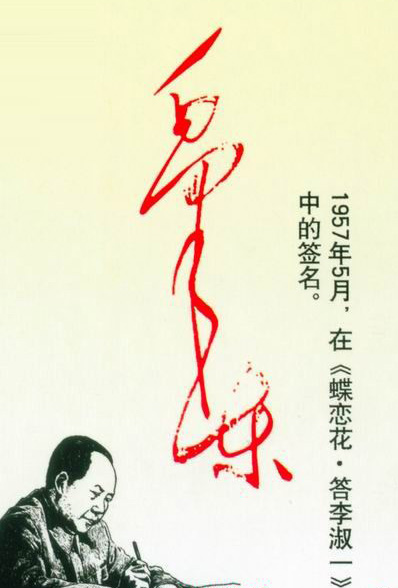 1957年5月，在《蝶恋花·答李淑一》
中的签名。